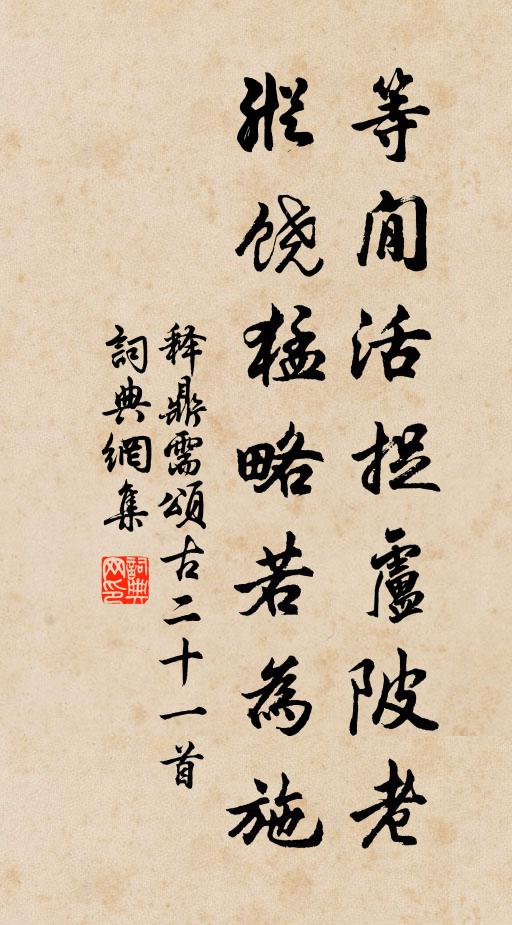 等閒活捉盧陂老
縱饒猛略若為施
释鼎需頌古二十一首
詞典網集
詞典网印